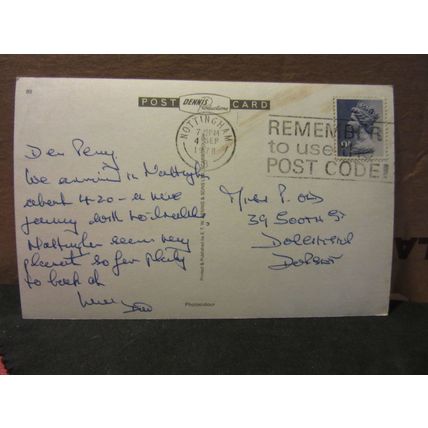 89
POST DENNIS Productions CARD
NOTTINGHAM
7-PM
4 SEP
1978
REMEMBER
to use
POST CODE!
Dear Penny
We arrived in Nottingham
about 4.20 - a nice
journey with no
Nottingham seems very
pleasant so far plenty
to look at
Love Dad
Miss P.
39 SOUTH ST
DORCHESTER
DORSET
Printed & Published by E. T. W. DENNIS & SONS
Photocolour